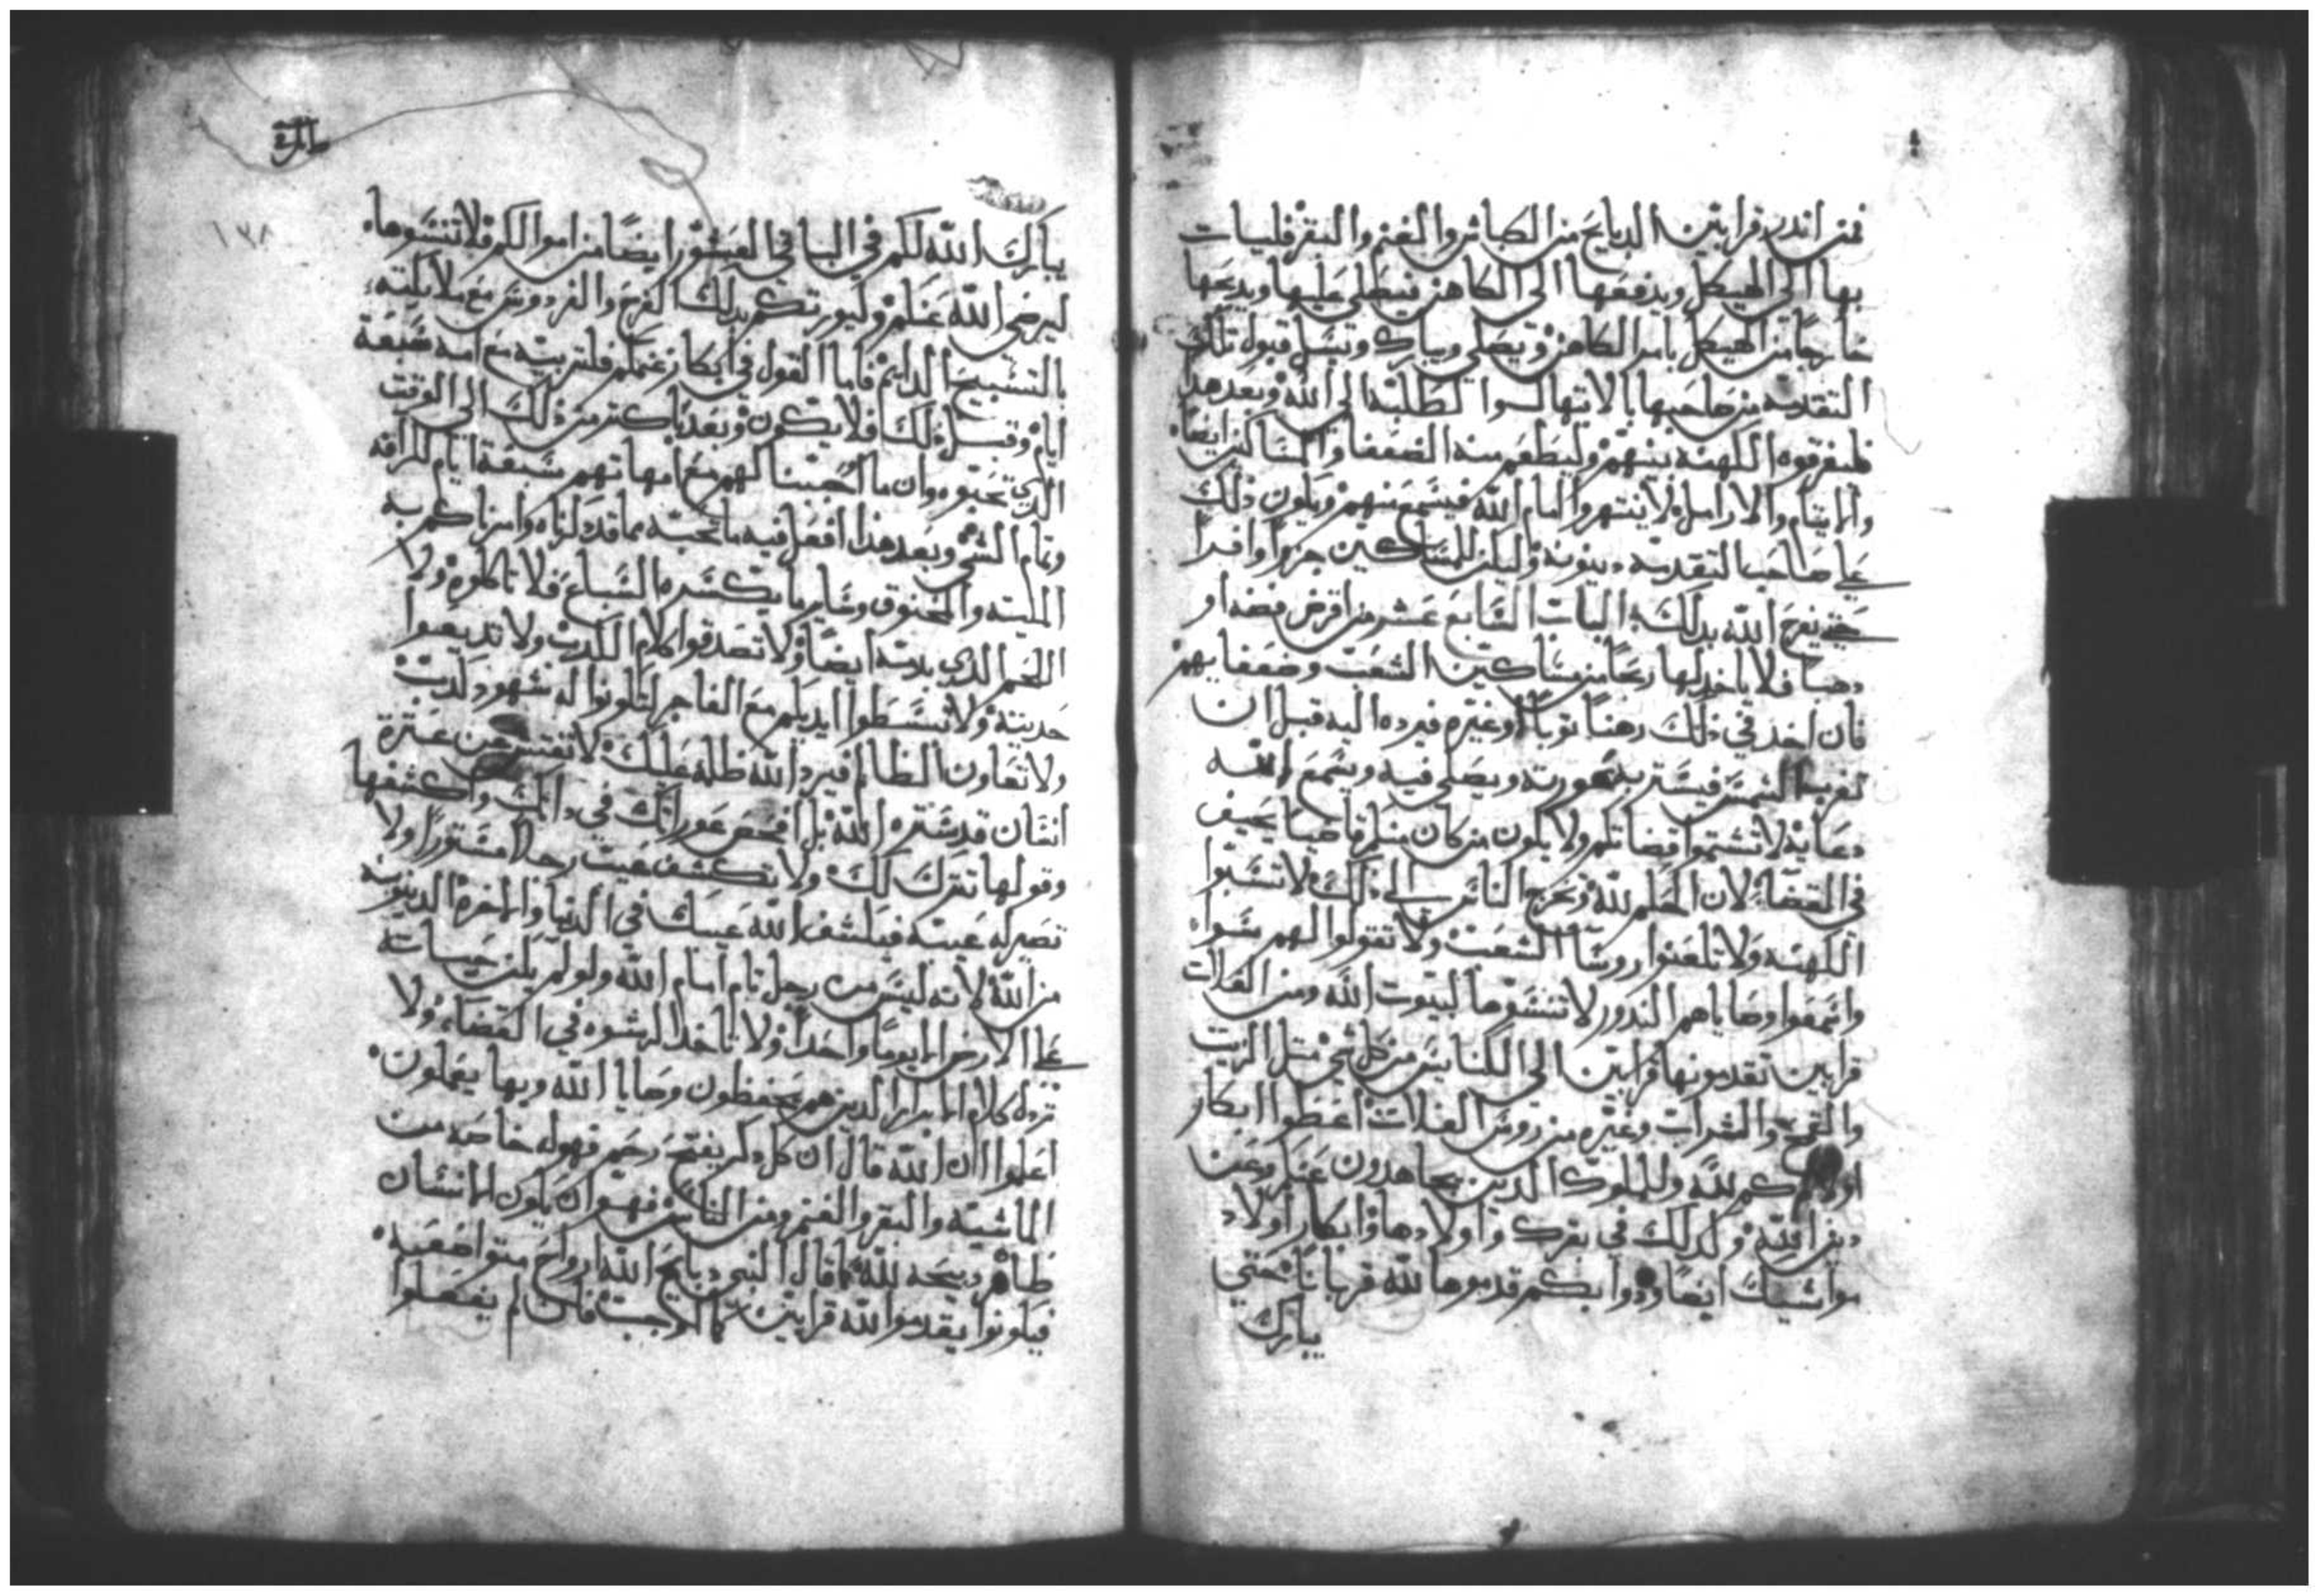 فمن اندر قرابين الدبايح من الكباش والغنم والبقر فليات
بها الى الهيكل ويدفعها الى الكاهن فيصلى عليها ويدبحها
خارجا من الهيكل بامر الكاهن ويصلي ويبارك ويسل قبول تلك
التقدمه من صاحبها بالابتهال الطلبه الى الله وبعد هدا
فليفرقوه الكهنه بينهم وليطعم منه الضعفا والمساكين ايضا
والايتام والارامل لا ينتهروا امام الله فيسمع منهم ويكون ذلك
على صاحب التقدمه دينونه وليكن للمساكين جزوا وافرا
حتى يفرح الله بدلك الباب السابع عشر من اقرض فضه او
دهبا فلا ياخد لها ربحا من مساكين الشعب وضعفايهم
فان اخد في ذلك رهنا توبا او غيره فيرده اليه قبل ان
تغرب الشمس فيستتر به عورته ويصلى فيه ويسمع الله
دعايه لا تشتموا قضاتكم ولا يكون من كان منكم قاضيا يحيف
في القضا لان الحكم لله ويحرج الناس الى ذلك لا تسبوا
الكهنه ولا تلعنوا روسا الشعب ولا تقولوا لهم سوا
واسمعوا وصاياهم الندور لا تنسوها لبيوت الله ومن الغلات
قرابين تقدمونها قرابين الى الكنايس من كل شي مثل الزيت
والقمح والشراب وغيره من روس الغلات اعطوا ابكار
اولادكم لله وللملوك الدين يجاهدون عنكم وعن
دين الله وكدلك في بقرك واولادها وابكار اولاد
مواشيك ايضا ودوابكم قدموها لله قربانا حتى
يبارك
طارق
١٣٨
يبارك الله لكم في الباقي العشور ايضا من اموالكم فلا تنسوها
ليرضى الله عنكم وليورتكم بدلك الفرح والفردوس مع ملايكته
بالتسبيح الدايم فاما القول في ابكار غنمكم فلتربيه مع امه سبعة
ايام وقبل ذلك فلا يكون وبعد باكتر من ذلك الى الوقت
الدي تحبوه وان ما احببنا لهم مع امهاتهم سبعة ايام للرافه
وتمام الشي وبعد هذا افعل فيه ما تحبه مما قد ذكرناه وامرناكم به
الميته والمخنوق وساير ما يكسره السباع فلا تاكلوه ولا
اللحم الدي بدمه ايضا ولا تصدقوا كلام الكدب ولا تديعوا
حديته ولا تبسطوا ايديكم مع الفاجر لتكونوا له شهود كدبه
ولا تعاون الظالم فيرد الله ظلمه عليك لا تفتش عن عترة
انسان قد ستره الله بل افحص عوراتك في داتك واكشفها
وقولها تترك لك ولا تكشف عيب رجلا مستورا ولا
تصير له عيبه فيكشف الله عيبك في الدنيا والاخره الدينونه
من الله لانه ليس من رجل تام امام الله ولو لم يكن حياته
على الارض الا يوما واحدا ولا تاخد الرشوه في القضاء ولا
ترد كلام الابرار الدين هم يحفظون وصايا الله وبها يعملون
اعلموا ان الله قال ان كل دكر يفتح رحم فهو له خاصه من
الماشيه والبقر والغنم ومن الناس فهو ان يكون الانسان
طاهر دبيحه لله كما قال النبي دبايح الله ارواح متواضعيه
فيكونوا يقدموا لله قرابين كالواجب فان لم يفعلوا